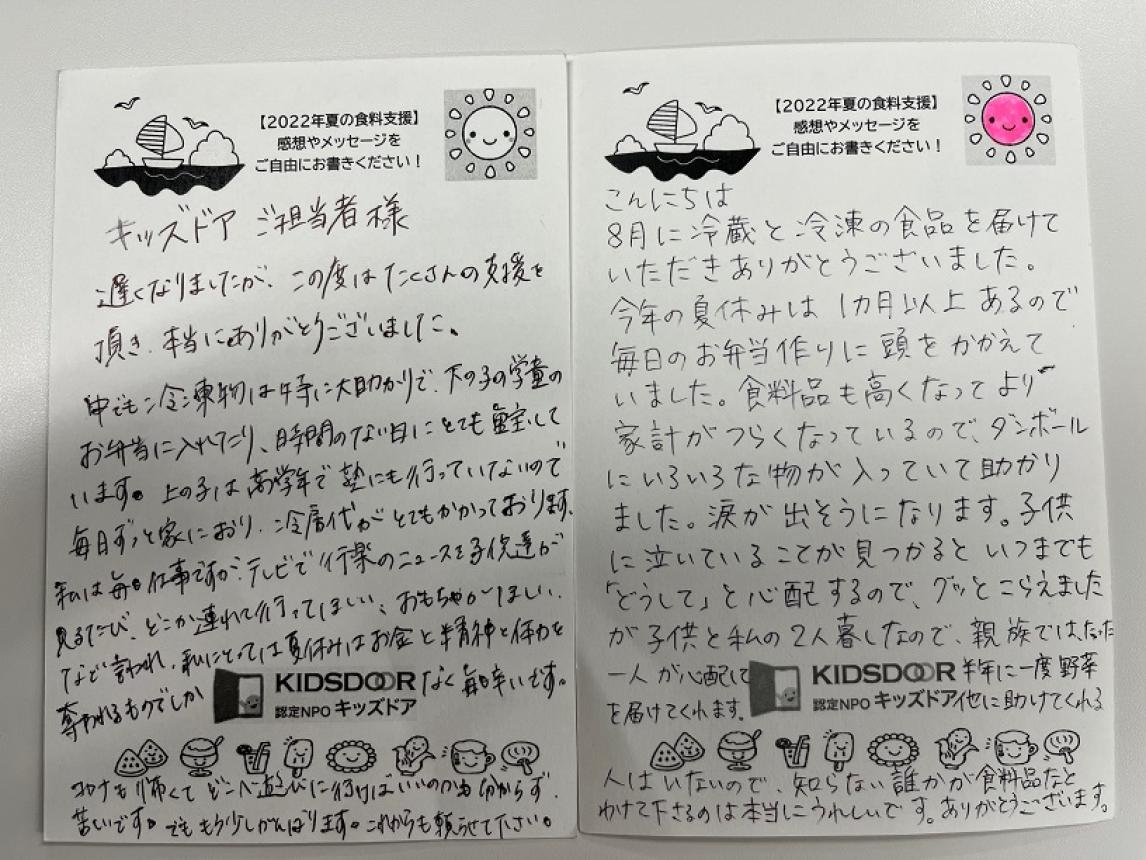 【2022年夏の食料支援】
感想やメッセージを
ご自由にお書きください！
キッズドア ご担当者様
遅くなりましたが、この度はたくさんの支援を
頂き、本当にありがとうございました。
中でも冷凍物は特に大助かりで、下の子の学童の
お弁当に入れたり、時間のない日にとても重宝して
います。上の子は高学年で塾にも行っていないので
毎日ずっと家におり、冷房代がとてもかかっております。
私は毎日仕事ですが、テレビで行楽のニュースを子供達が
見るたび、どこか連れて行ってほしい、おもちゃがほしい、
など言われ、私にとっては夏休みはお金と精神と体力を
奪われるものでしか なく毎日辛いです。
KIDSDOOR
認定NPO キッズドア
コロナも怖くてどこへ遊びに行けばいいのかも分からず、
苦しいです。でももう少しがんばります。これからも頼らせて下さい。
【2022年夏の食料支援】
感想やメッセージを
ご自由にお書きください！
こんにちは
8月に冷蔵と冷凍の食品を届けて
いただきありがとうございました。
今年の夏休みは1カ月以上あるので
毎日のお弁当作りに頭をかかえて
いました。食料品も高くなってより
家計がつらくなっているので、ダンボール
にいろいろな物が入っていて助かり
ました。涙が出そうになります。子供
に泣いていることが見つかるといつまでも
「どうして」と心配するので、グッとこらえました
が子供と私の2人暮しなので、親族ではたった
一人が心配して 半年に一度野菜
KIDSDOOR
を届けてくれます。 他に助けてくれる
認定NPO キッズドア
人はいないので、知らない誰かが食料品など
わけて下さるのは本当にうれしいです。ありがとうございます。